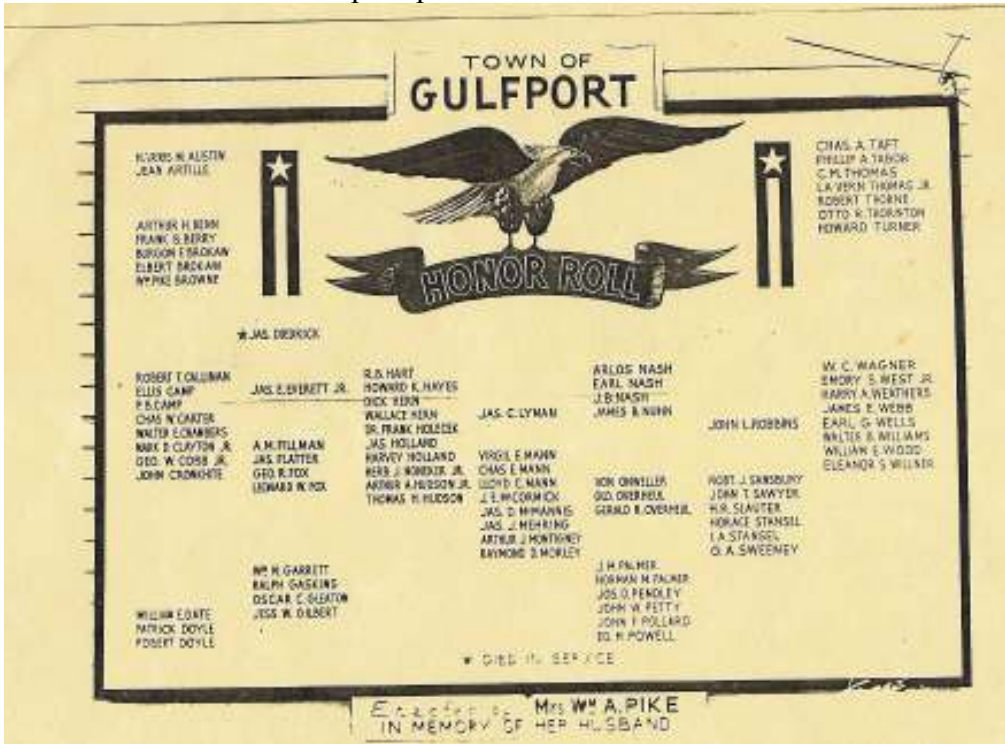 TOWN OF
GULFPORT
HONOR ROLL
JEAN ARTILLE
ARTHUR H. BENN
FRANK B. BERRY
BURGON F. BROKAW
ELBERT BROKAW
WM PIKE BROWNE
★ JAS. DIEDRICK
ROBERT T. CALLINAN
ELLIS CAMP
P. B. CAMP
CHAS W. CARTER
WALTER E. CHAMBERS
MARK D. CLAYTON JR.
GEO. W. COBB JR.
JOHN CRONKHITE
WILLIAM E. DATE
PATRICK DOYLE
ROBERT DOYLE
JAS. E. EVERETT JR.
A. M. FILLMAN
JAS. FLATTER
GEO. R. FOX
LEONARD W. FOX
WM H. GARRITT
RALPH GASKINS
OSCAR C. GLEATON
JESS W. GILBERT
R. B. HART
HOWARD K. HAYES
DICK HERN
WALLACE HERN
DR. FRANK HOLECEK
JAS. HOLLAND
HARVEY HOLLAND
HERB J. JR.
ARTHUR A. HUDSON JR.
THOMAS H. HUDSON
JAS. C. LYMAN
VIRGIL E. MANN
CHAS E. MANN
LLOYD C. MANN
J. E. McCORMICK
JAS. D. McMANNIS
JAS. J. MEHRING
ARTHUR J. MONTIGNEY
RAYMOND D. MORLEY
ARLOS NASH
EARL NASH
J. B. NASH
JAMES B. NUNN
VON OHWELLER
GLO. OVERHEUL
GERALD R. OVERHEUL
J. H. PALMER
NORMAN M. PALMER
JOS. O. PENDLEY
JOHN W. PETTY
JOHN F. POLLARD
ED. H. POWELL
JOHN L. ROBBINS
ROBT. J. SANSBURY
JOHN T. SAWYER
H. R. SLAUTER
HORACE STANSEL
I. A. STANGEL
O. A. SWEENEY
CHAS. A. TAFT
PHILLIP A. TABOR
C. M. THOMAS
LA VERN THOMAS JR.
ROBERT THORNE
OTTO R. THORNTON
HOWARD TURNER
W. C. WAGNER
EMORY S. WEST JR.
HARRY A. WEATHERS
JAMES E. WEBB
EARL G. WELLS
WALTER B. WILLIAMS
WILLIAM E. WOOD
ELEANOR S. WILLNER
★ DIED IN SERVICE
Erected by Mrs WM A. PIKE
IN MEMORY OF HER HUSBAND